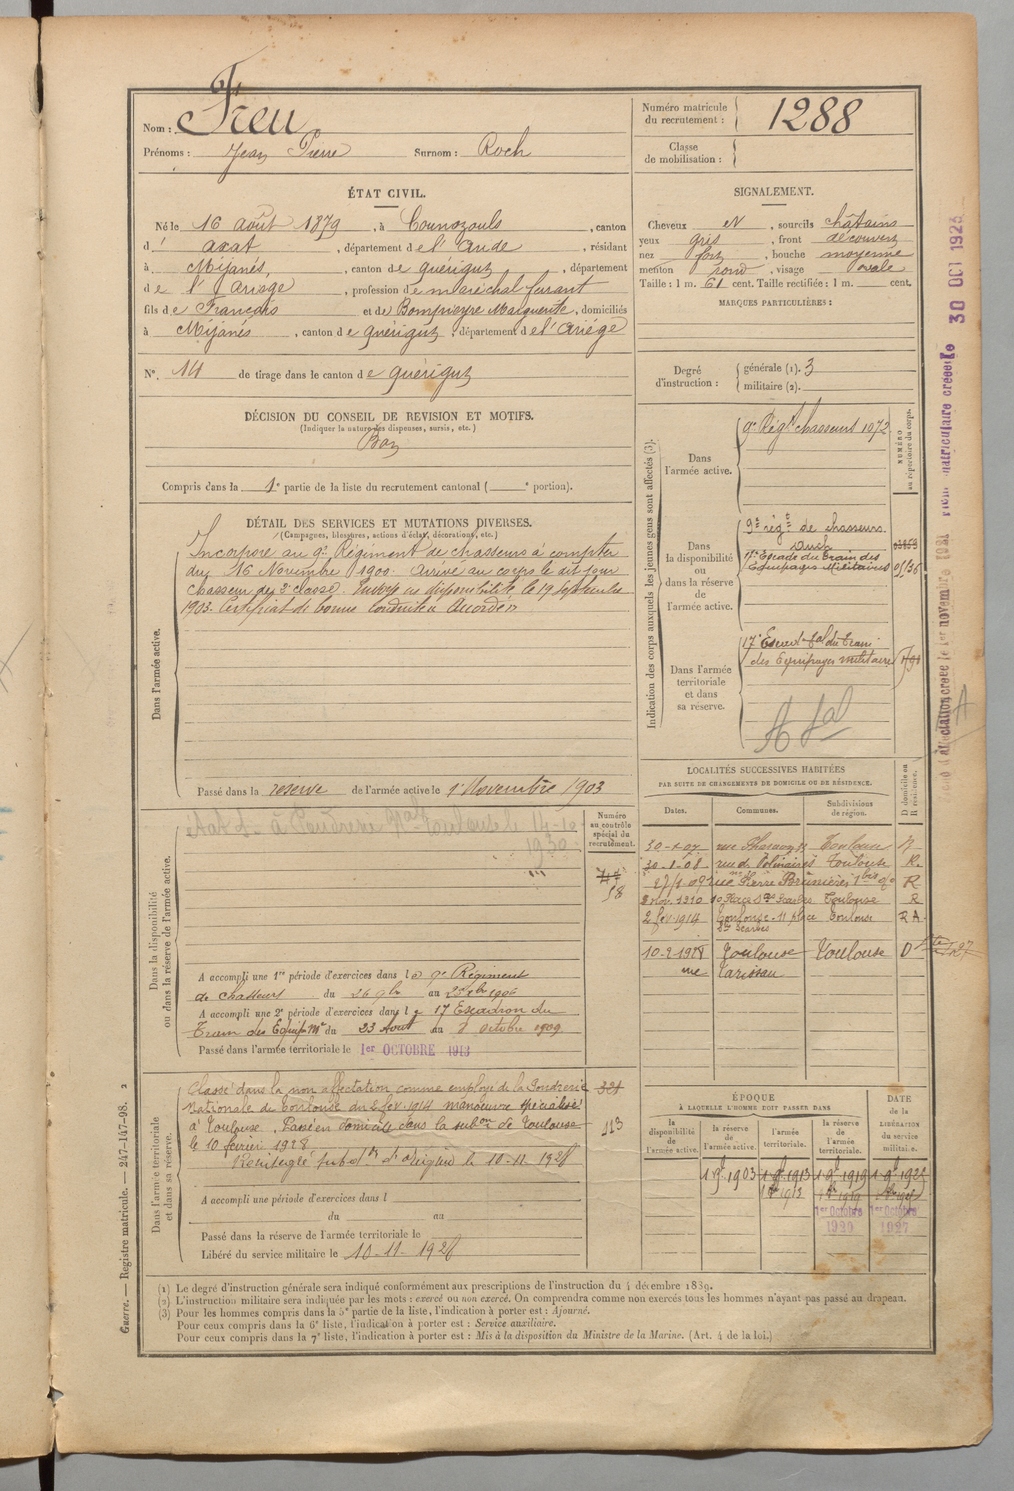 Nom : Freu
Prénoms : Jean Pierre Surnom : Roch
Numéro matricule du recrutement : 1288
Classe de mobilisation :
ÉTAT CIVIL.
Né le 16 août 1879, à Counozouls, canton
d' axat, département de l'Aude, résidant
à Mijanés, canton de guérigut, département
de l'Ariège, profession de maréchal ferrant
fils de François et de Bompieyre Marguerite, domiciliés
à Mijanés, canton de guérigut, département de l'Ariége
N°. 14 de tirage dans le canton de guérigut
DÉCISION DU CONSEIL DE REVISION ET MOTIFS.
(Indiquer la nature des dispenses, sursis, etc.)
Bon
Compris dans la 1e partie de la liste du recrutement cantonal ( e portion).
SIGNALEMENT.
Cheveux N, sourcils châtains
yeux gris, front découvert
nez fort, bouche moyenne
menton rond, visage ovale
Taille : 1 m. 61 cent. Taille rectifiée : 1 m. cent.
MARQUES PARTICULIÈRES :
Degré d'instruction : générale (1). 3
militaire (2).
DÉTAIL DES SERVICES ET MUTATIONS DIVERSES.
(Campagnes, blessures, actions d'éclat, décorations, etc.)
Dans l'armée active.
Incorporé au 9e Régiment de chasseurs à compter
du 16 Novembre 1900. Arrivé au corps le dit jour
chasseur de 2e classe. Envoyé en disponibilité le 19 Septembre
1903. Certificat de bonne conduite Accordé
Passé dans la réserve de l'armée active le 1er Novembre 1903
Indication des corps auxquels les jeunes gens sont affectés (3).
NUMÉRO au répertoire du corps.
Dans l'armée active.
9e Régt chasseurs 1072
Dans la disponibilité ou dans la réserve de l'armée active.
9e régt de chasseurs
Auch
17e Escadn du Train des
Equipages Militaires
Dans l'armée territoriale et dans sa réserve.
17e Escad. tal du Train
des Equipages militaires
A tal
LOCALITÉS SUCCESSIVES HABITÉES
PAR SUITE DE CHANGEMENTS DE DOMICILE OU DE RÉSIDENCE.
Dates. Communes. Subdivisions de région. D domicile ou R résidence.
Toulouse R
30-1-08 Toulouse R.
rue Pierre R
10 Place Ste Scarbes Toulouse R
2 fev. 1914 Toulouse - 11 place Toulouse R A
Ste Scarbes
10-2-1928 Toulouse Toulouse D
rue Tarissan
Dans la disponibilité ou dans la réserve de l'armée active.
Numéro au contrôle spécial du recrutement.
58
A accompli une 1re période d'exercices dans le 9e Régiment
de chasseurs du 26 9bre au 1906
A accompli une 2e période d'exercices dans le 17 Escadron du
Train des Equip. Mre du 23 Août au octobre 1909
Passé dans l'armée territoriale le 1er OCTOBRE 1913
Dans l'armée territoriale et dans sa réserve.
Classé dans la non affectation comme employé de la Poudrerie
Nationale de Toulouse du 2 fev. 1914 manoeuvre spécialisé
à Toulouse. Passé en domicile dans la subon de Toulouse
le 10 février 1928
le 10-11-1928
321
113
A accompli une période d'exercices dans l
du au
Passé dans la réserve de l'armée territoriale le
Libéré du service militaire le 10-11-1928
ÉPOQUE
À LAQUELLE L'HOMME DOIT PASSER DANS
DATE de la LIBÉRATION du service militaire.
la disponibilité de l'armée active. la réserve de l'armée active. l'armée territoriale. la réserve de l'armée territoriale.
1 9bre 1903 1 9bre 1913 1 9bre 1919 1 9bre 1925
1er Octobre 1920 1er Octobre 1927
(1) Le degré d'instruction générale sera indiqué conformément aux prescriptions de l'instruction du 4 décembre 1889.
(2) L'instruction militaire sera indiquée par les mots : exercé ou non exercé. On comprendra comme non exercés tous les hommes n'ayant pas passé au drapeau.
(3) Pour les hommes compris dans la 5e partie de la liste, l'indication à porter est : Ajourné.
Pour ceux compris dans la 6e liste, l'indication à porter est : Service auxiliaire.
Pour ceux compris dans la 7e liste, l'indication à porter est : Mis à la disposition du Ministre de la Marine. (Art. 4 de la loi.)
Guerre. — Registre matricule. — 247-147-98. 2
30 OCT 1923